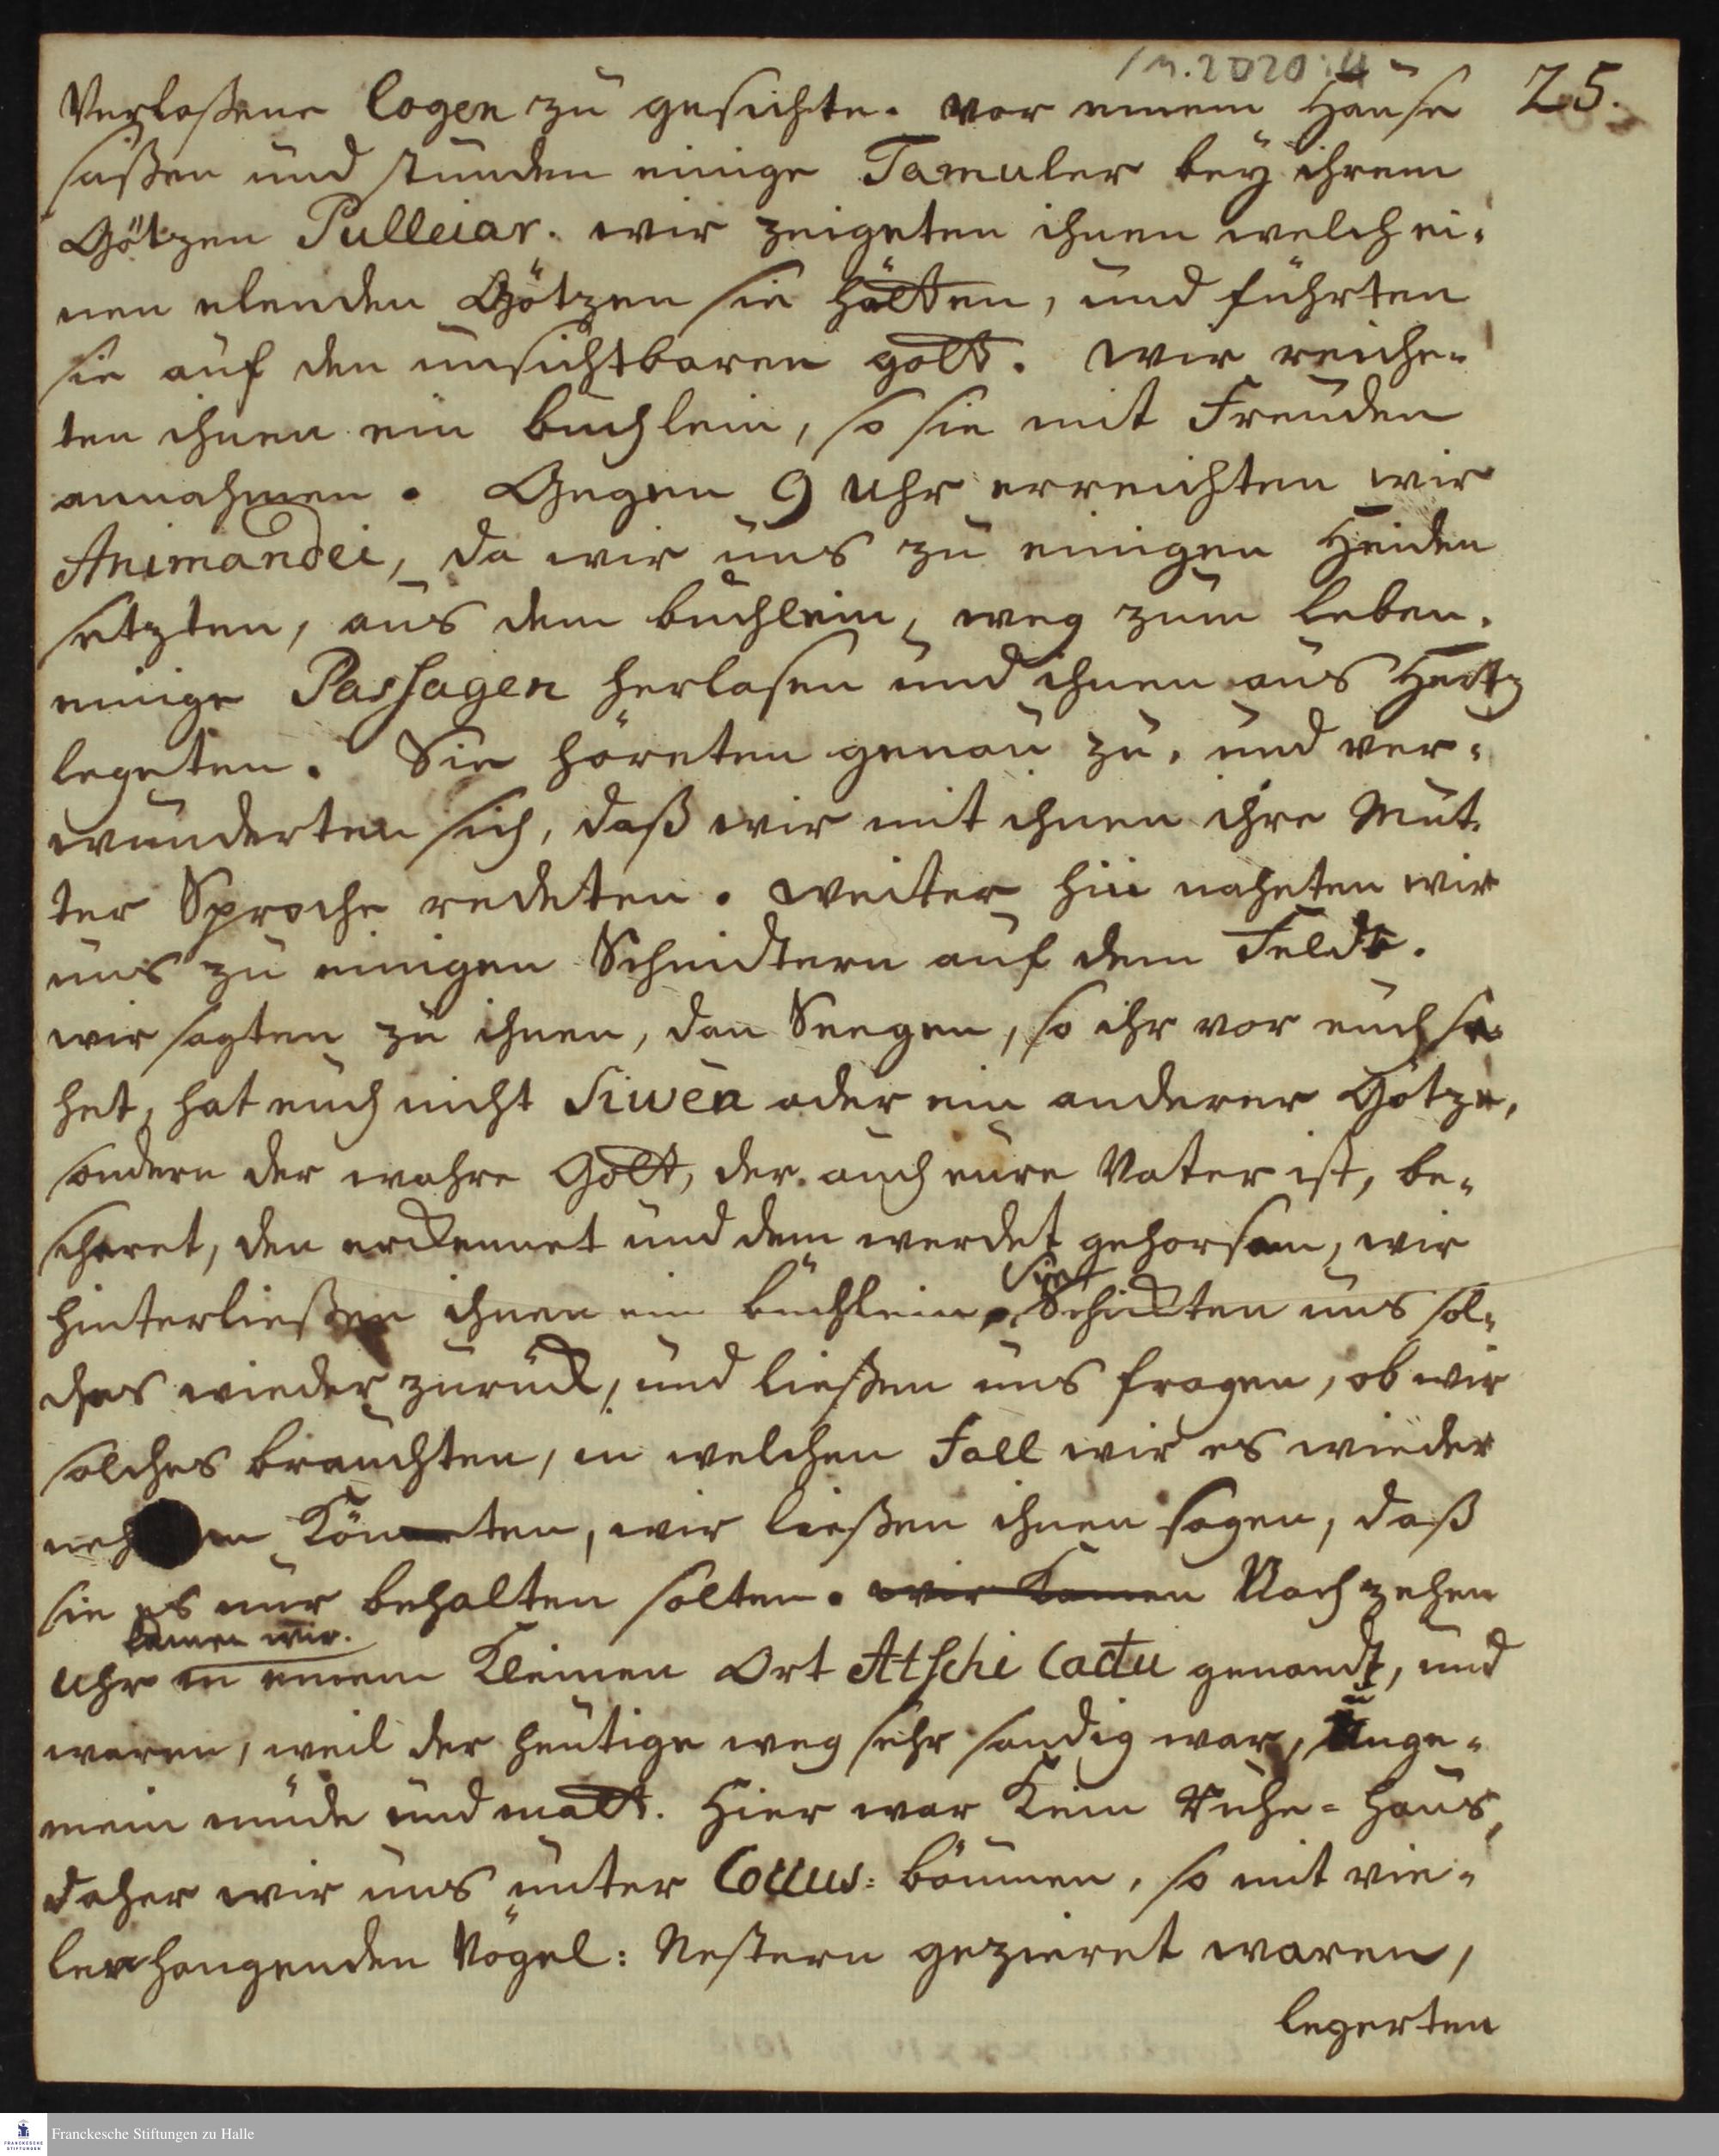 / M. 2020:4
Verlaßene Logen zu gesichte. vor einem Hause 25.
saßen und stunden einige Tamuler bey ihrem
Götzen Pulleiar. wir zeigeten ihnen welch ei-
nen elenden Götzen sie hätten, und führten
sie auf den unsichtbaren gott. Wir reiche-
ten ihnen ein buchlein, so sie mit Freuden
annahmen. Gegen 9 Uhr erreichten wir
Animandei, da wir uns zu einigen Heiden
setzten, aus dem büchlein, weg zum leben.
einige Passagen herlasen und ihnen ans Hertz
legeten. Sie höreten genau zu, und ver-
wunderten sich, daß wir mit ihnen ihre Mut-
ter Sprache redeten. weiter hin naheten wir
uns zu einigen Schnidtern auf dem Felde.
wir sagten zu ihnen, den Seegen, so ihr vor euch se-
het, hat euch nicht Siwen oder ein anderer Götze,
sondern der wahre Gott, der auch eure Vater ist, be-
scheret, den erkennet und dem werdet gehorsam, wir
Sie
hinterließen ihnen ein büchlein, Schickten uns sol-
ches wieder zurück, und ließen uns fragen, ob wir
solches brauchten, in welchen Fall wir es wieder
neh en Könten, wir ließen ihnen sagen, daß
sie es nur behalten solten. wir kamen Nach zehen
kamen wir
Uhr in einem Kleinen Ort Atschi Cactu genandt, und
waren, weil der heutige weg sehr sandig war, Unge-
mein müde und matt. Hier war Kein Ruhe-haus,
daher wir uns unter Cocus-bäumen, so mit vie-
len hangenden Vögel-Nestern gezieret waren,
legerten
Franckesche Stiftungen zu Halle
FRANCKESCHE
STIFTUNGEN